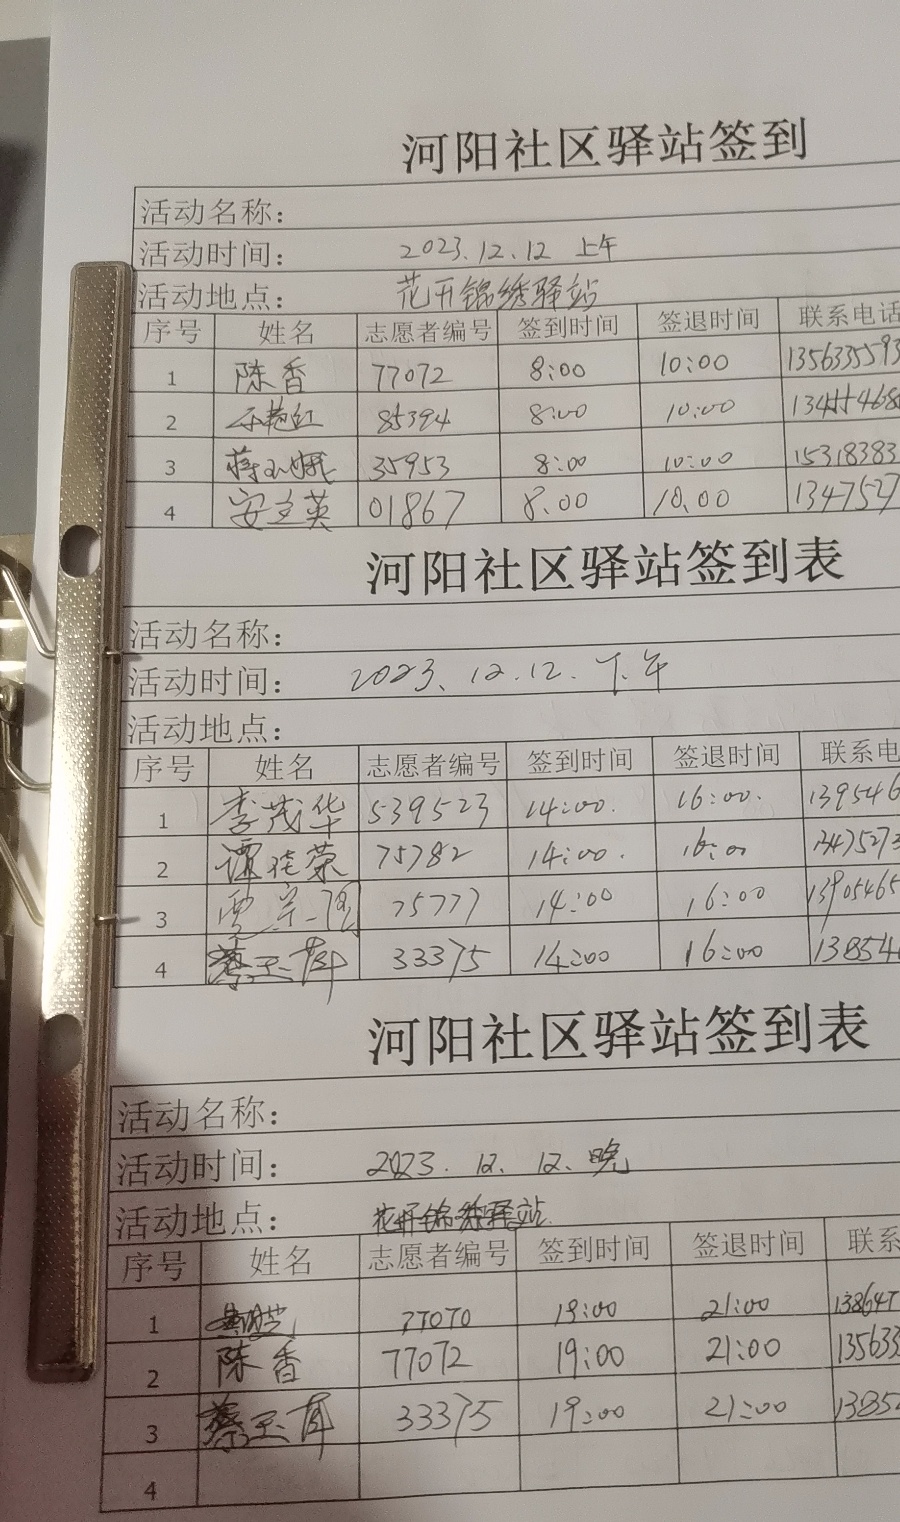 河阳社区驿站签到
活动名称：
活动时间： 2023.12.12 上午
活动地点： 花开锦绣驿站
序号 姓名 志愿者编号 签到时间 签退时间 联系电话
1 陈香 77072 8:00 10:00 1356335593
2 85394 8:00 10:00
3 35953 8:00 10:00 15318383
4 安文英 01867 8.00 10.00 1347527
河阳社区驿站签到表
活动名称：
活动时间： 2023、12.12.下午
活动地点：
序号 姓名 志愿者编号 签到时间 签退时间 联系电
1 李茂华 539523 14:00. 16:00. 139546
2 75782 14:00. 16:00 13475273
3 75777 14:00 16:00 13905465
4 33375 14:00 16:00 13854
河阳社区驿站签到表
活动名称：
活动时间： 2023.12、12、晚
活动地点： 花开锦绣驿站
序号 姓名 志愿者编号 签到时间 签退时间 联系
1 77070 19:00 21:00 138647
2 陈香 77072 19:00 21:00 135633
3 33375 19:00 21:00 13854
4